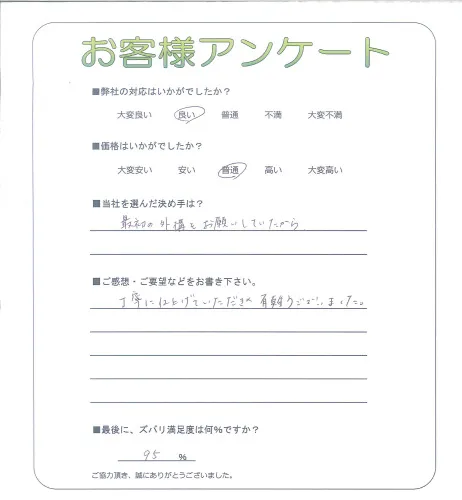 お客様アンケート
■弊社の対応はいかがでしたか？
大変良い 良い 普通 不満 大変不満
■価格はいかがでしたか？
大変安い 安い 普通 高い 大変高い
■当社を選んだ決め手は？
最初の外構もお願いしていたから
■ご感想・ご要望などをお書き下さい。
丁寧に仕上げていただき有難うございました。
■最後に、ズバリ満足度は何%ですか？
95 %
ご協力頂き、誠にありがとうございました。